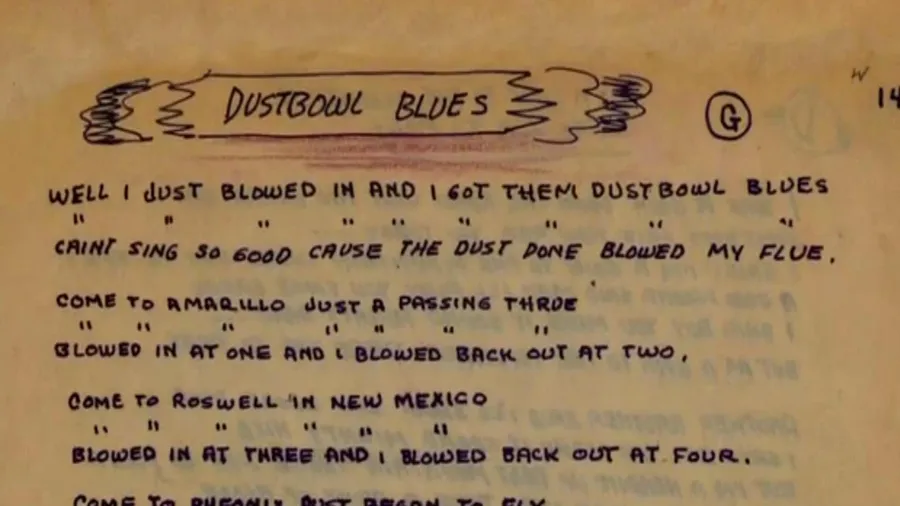 DUSTBOWL BLUES
G
W
14
WELL I JUST BLOWED IN AND I GOT THEM DUSTBOWL BLUES
" " " " " " " " "
CAINT SING SO GOOD CAUSE THE DUST DONE BLOWED MY FLUE.
COME TO AMARILLO JUST A PASSING THROE
" " " " " " "
BLOWED IN AT ONE AND I BLOWED BACK OUT AT TWO.
COME TO ROSWELL IN NEW MEXICO
" " " " " "
BLOWED IN AT THREE AND I BLOWED BACK OUT AT FOUR.
COME TO PHEONIX DUST BEGAN TO FLY